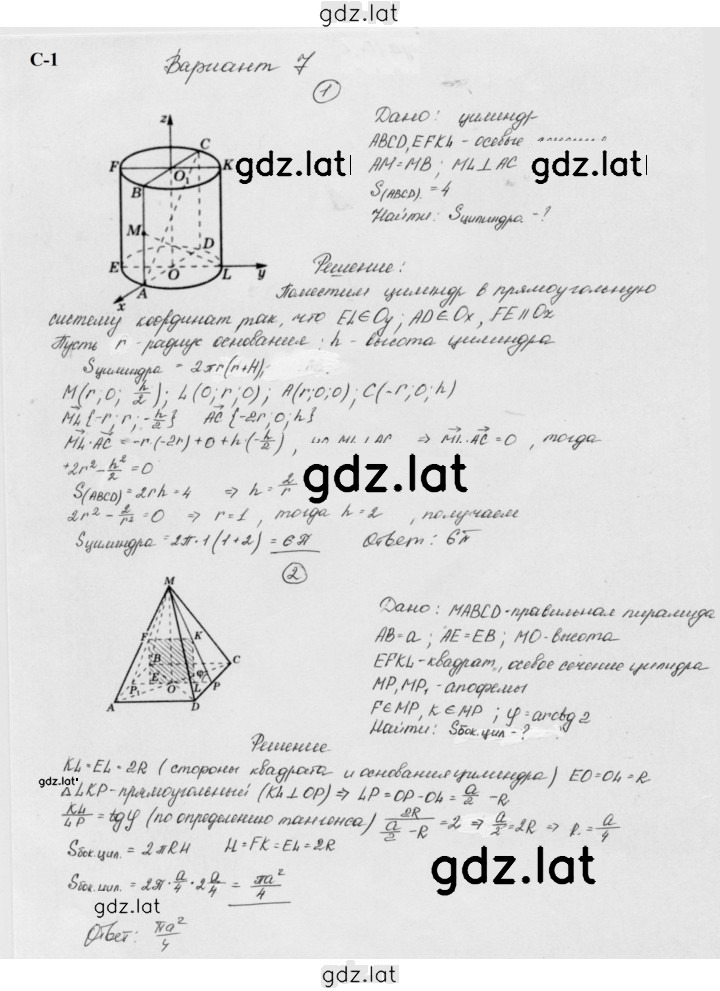 gdz.lat
С-1
Вариант 7
1
Дано: цилиндр
ABCD, EFKL - осевые
AM = MB; ML ⊥ AC
S(ABCD) = 4
Найти: Sцилиндра - ?
z
C
F
K
O₁
B
M
D
E
O
L
y
A
x
gdz.lat
Решение:
Поместим цилиндр в прямоугольную
систему координат так, что EL∈Oy; AD∈Ox, FE∥Ox
Пусть r - радиус основания; h - высота цилиндра
Sцилиндра = 2πr(r+H);
M(r; 0; h/2); L(0; r; 0); A(r; 0; 0); C(-r; 0; h)
ML{-r; r; -h/2} AC{-2r; 0; h}
ML·AC = -r·(-2r)+0+h·(-h/2), ML AC ⇒ ML·AC = 0, тогда
+2r² - h²/2 = 0
S(ABCD) = 2rh = 4 ⇒ h = 2/r
gdz.lat
2r² - 2/r² = 0 ⇒ r = 1, тогда h = 2, получаем
Sцилиндра = 2π·1(1+2) = 6π Ответ: 6π
2
M
F
K
B
C
E
φ
P₁
O
L
P
A
D
Дано: MABCD - правильная пирамида
AB = a; AE = EB; MO - высота
EFKL - квадрат, осевое сечение цилиндра
MP, MP₁ - апофемы
F∈MP, K∈MP; φ = arctg 2
Найти: Sбок.цил - ?
Решение
KL = EL = 2R (стороны квадрата и основания цилиндра) EO = OL = R
gdz.lat
△LKP - прямоугольный (KL⊥OP) ⇒ LP = OP - OL = a/2 - R
KL/LP = tgφ (по определению тангенса) 2R/(a/2 - R) = 2 ⇒ a/2 = 2R ⇒ R = a/4
Sбок.цил. = 2πRH H = FK = EL = 2R
gdz.lat
Sбок.цил. = 2π·a/4·2a/4 = πa²/4
gdz.lat
Ответ: πa²/4
gdz.lat